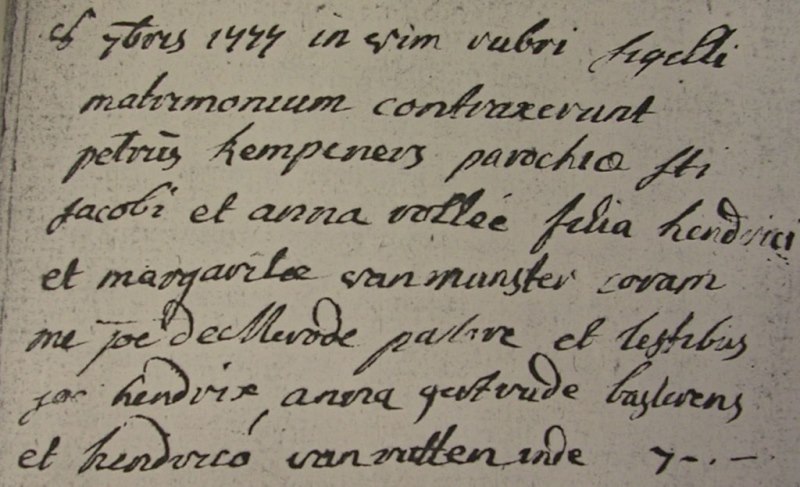 7bris 1777 in vim rubri sigelli
matrimonium contraxerunt
petrus kempeners parochiæ sti
jacobi et anna vollée filia hendrici
et margaritæ van munster coram
me joē de Merode pastore et testibus
hendrix anna gertrude
et hendricó van rutten inde 7-.-